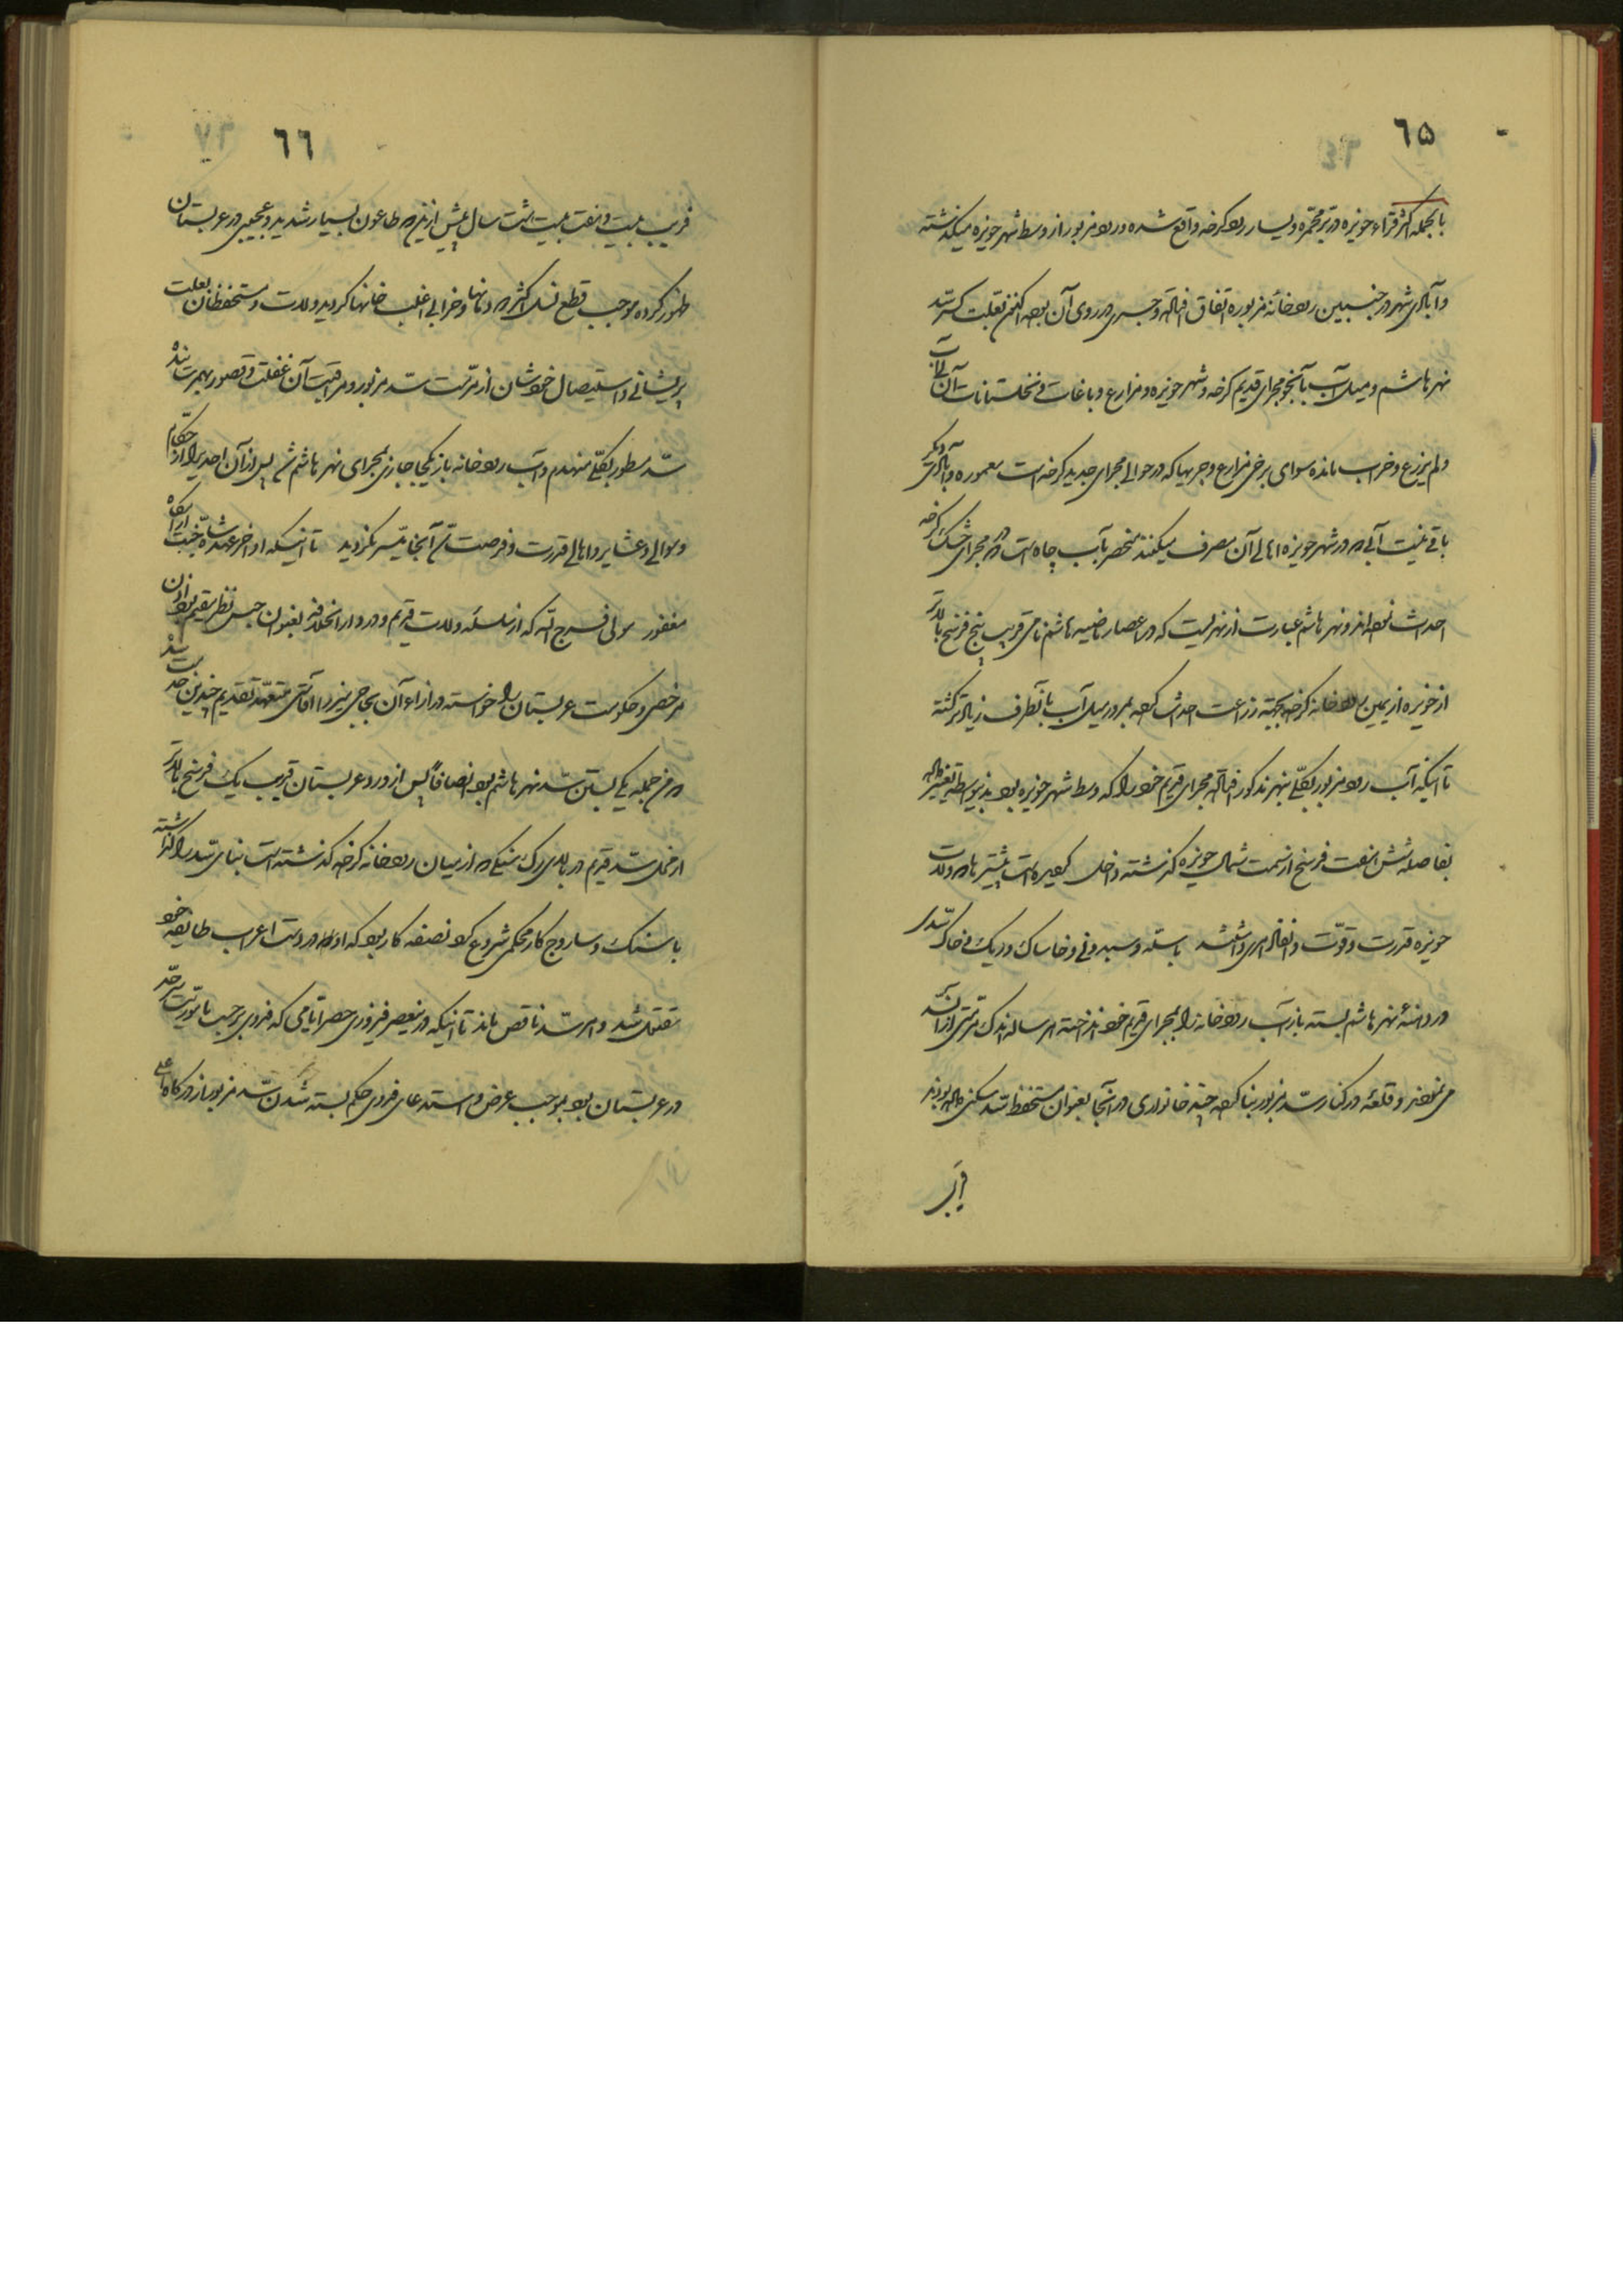 ٦۵
بالجمله اکثر قراء حویزه در بر محمره و یسار رود کرخه واقع شده و رود مزبور از وسط شهر حویزه میگذشته
و آبادی شهر در جنبین رودخانه مزبوره اتفاق افتاده و جسری در روی آن بوده اکنون بعلت کسر سد
نهر هاشم و میل آب بآنجو مجرای قدیم کرخه و شهر حویزه و مزارع و باغات و نخلستانات آن بی آب
و لم یزرع و خراب مانده سوای برخی مزارع و جریبها که در حوالی مجرای جدید کرخه است معموره و آبادی دیگر
باقی نیست آبی که در شهر حویزه اهالی آن مصرف میکنند منحصر بآب چاه است که در مجرای خشک کرخه
احداث نموده اند و نهر هاشم عبارت از نهریست که در اعصار ماضیه هاشم نامی قریب پنج فرسخ بالاتر
از حویزه از یمین رودخانه کرخه بجهته زراعت احداث کرده بمرور میل آب بآنطرف زیادتر گشته
تا اینکه آب رود مزبور بکلی بنهر مذکور افتاده مجرای قدیم خود را که وسط شهر حویزه بود بدینواسطه تغییر داده
بفاصله شش هفت فرسخ از سمت شمال حویزه گذشته داخل هور میشود است پیشترها که ولات
حویزه قدرت و قوت و نفاذ امری داشتند با سله و سبد و نی و خاشاک و ریک و خاک سدی
در دهنهٔ نهر هاشم بسته باز آب رودخانه را بمجرای قدیم خود انداخته هر ساله اندک مرمتی از آن سد
می نمودند و قلعهٔ در کنار سد مزبور بنا کرده چند خانواری در آنجا بعنوان مستحفظ سد سکنی داده بودند
قریب
٦٦
قریب بیست و هفت بیست هشت سال پیش از این که طاعون بسیار شدید و عجیبی در عربستان
ظهور کرده موجب قطع نسل اکثر دودمانها و خرابی اغلب خانها گردید ولات و مستحفظان بعلت
پریشانی و استیصال خودشان از مرمت سد مزبور و مراقبت آن غفلت و قصور بهمرسانده
سد مسطور بکلی منهدم و آب رودخانه باز یکجا جاری بمجرای نهر هاشم شد پس از آن احدی را از حکام
و موالی و عشایر و اهالی قدرت و فرصت سد آنجا میسر نگردید تا اینکه اواخر عهد شاه جنت آرامگاه
مغفور مولی فرج الله که از سلسله ولات قدیم و در دار الخلافه بعنوان حبس نظر مقیم بود اذن
مرخصی و حکومت عربستان را خواسته در ازاء آن بحاجی میرزا آقاسی متعهد تقدیم چندین خدمت شد
که من جمله یکی بستن سد نهر هاشم بود انصافاً پس از ورود عربستان قریب یک فرسخ بالاتر
از محل سد قدیم در بالای رک سنگی که از میان رودخانه کرخه گذشته است بنای سد را گذاشته
با سنگ و ساروج کار محکمی شروع کرد نصفه کار بود که او هم در دست اعراب طایفه خود
مقتول شد و امر سد ناقص ماند تا اینکه در نیعصر فیروزی حصر ایامی که فدوی بر حسب ماموریت سرحد
در عربستان بود بموجب عرض و استدعای فدوی حکم بسته شدن سد مزبور از درگاه اعلی